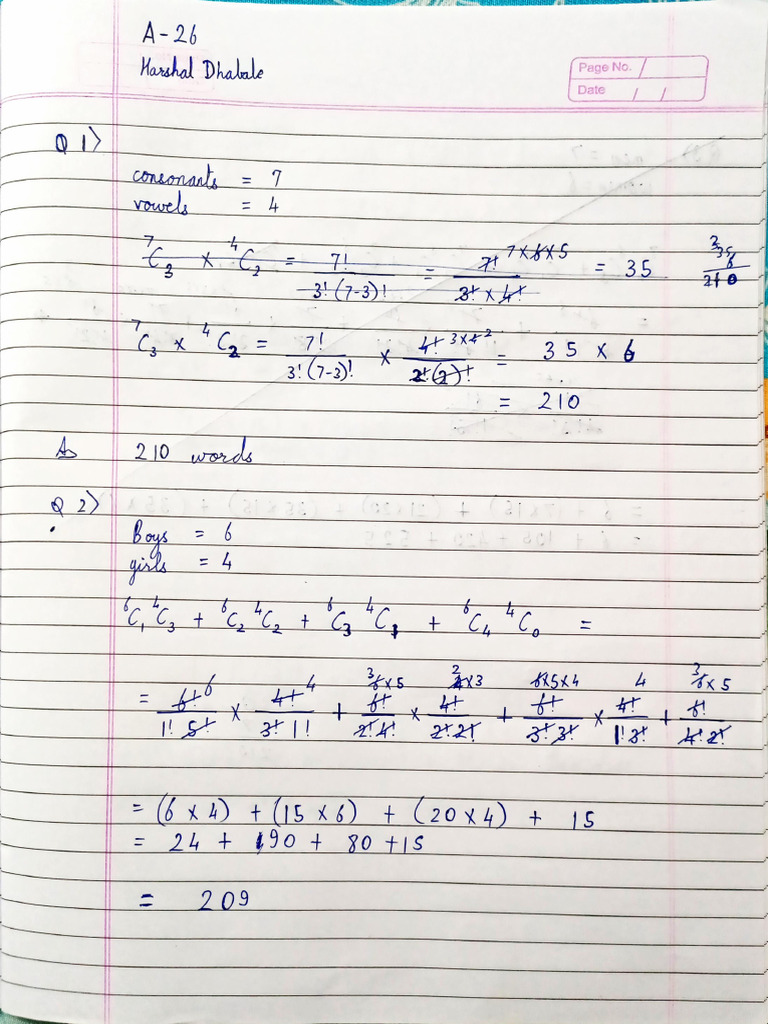 A-26
Harshal Dhabale
Page No.
Date / /
Q 1>
consonants = 7
vowels = 4
⁷C₃ × ⁴C₂ = 7! / 3!(7-3)! = 7! 7×6×5 / 3! × 4! = 35
35
6
210
⁷C₃ × ⁴C₂ = 7! / 3!(7-3)! × 4! 3×4 2 / 2!(2)! = 35 × 6
= 210
210 words
Q 2>
Boys = 6
girls = 4
⁶C₁ ⁴C₃ + ⁶C₂ ⁴C₂ + ⁶C₃ ⁴C₁ + ⁶C₄ ⁴C₀ =
= 6! 6 / 1! 5! × 4! 4 / 3! 1! + 3 6×5 6! / 2! 4! × 2 4×3 4! / 2! 2! + 6×5×4 6! / 3! 3! × 4 4! / 1! 3! + 3 6×5 6! / 4! 2!
= (6 × 4) + (15 × 6) + (20 × 4) + 15
= 24 + 90 + 80 + 15
= 209